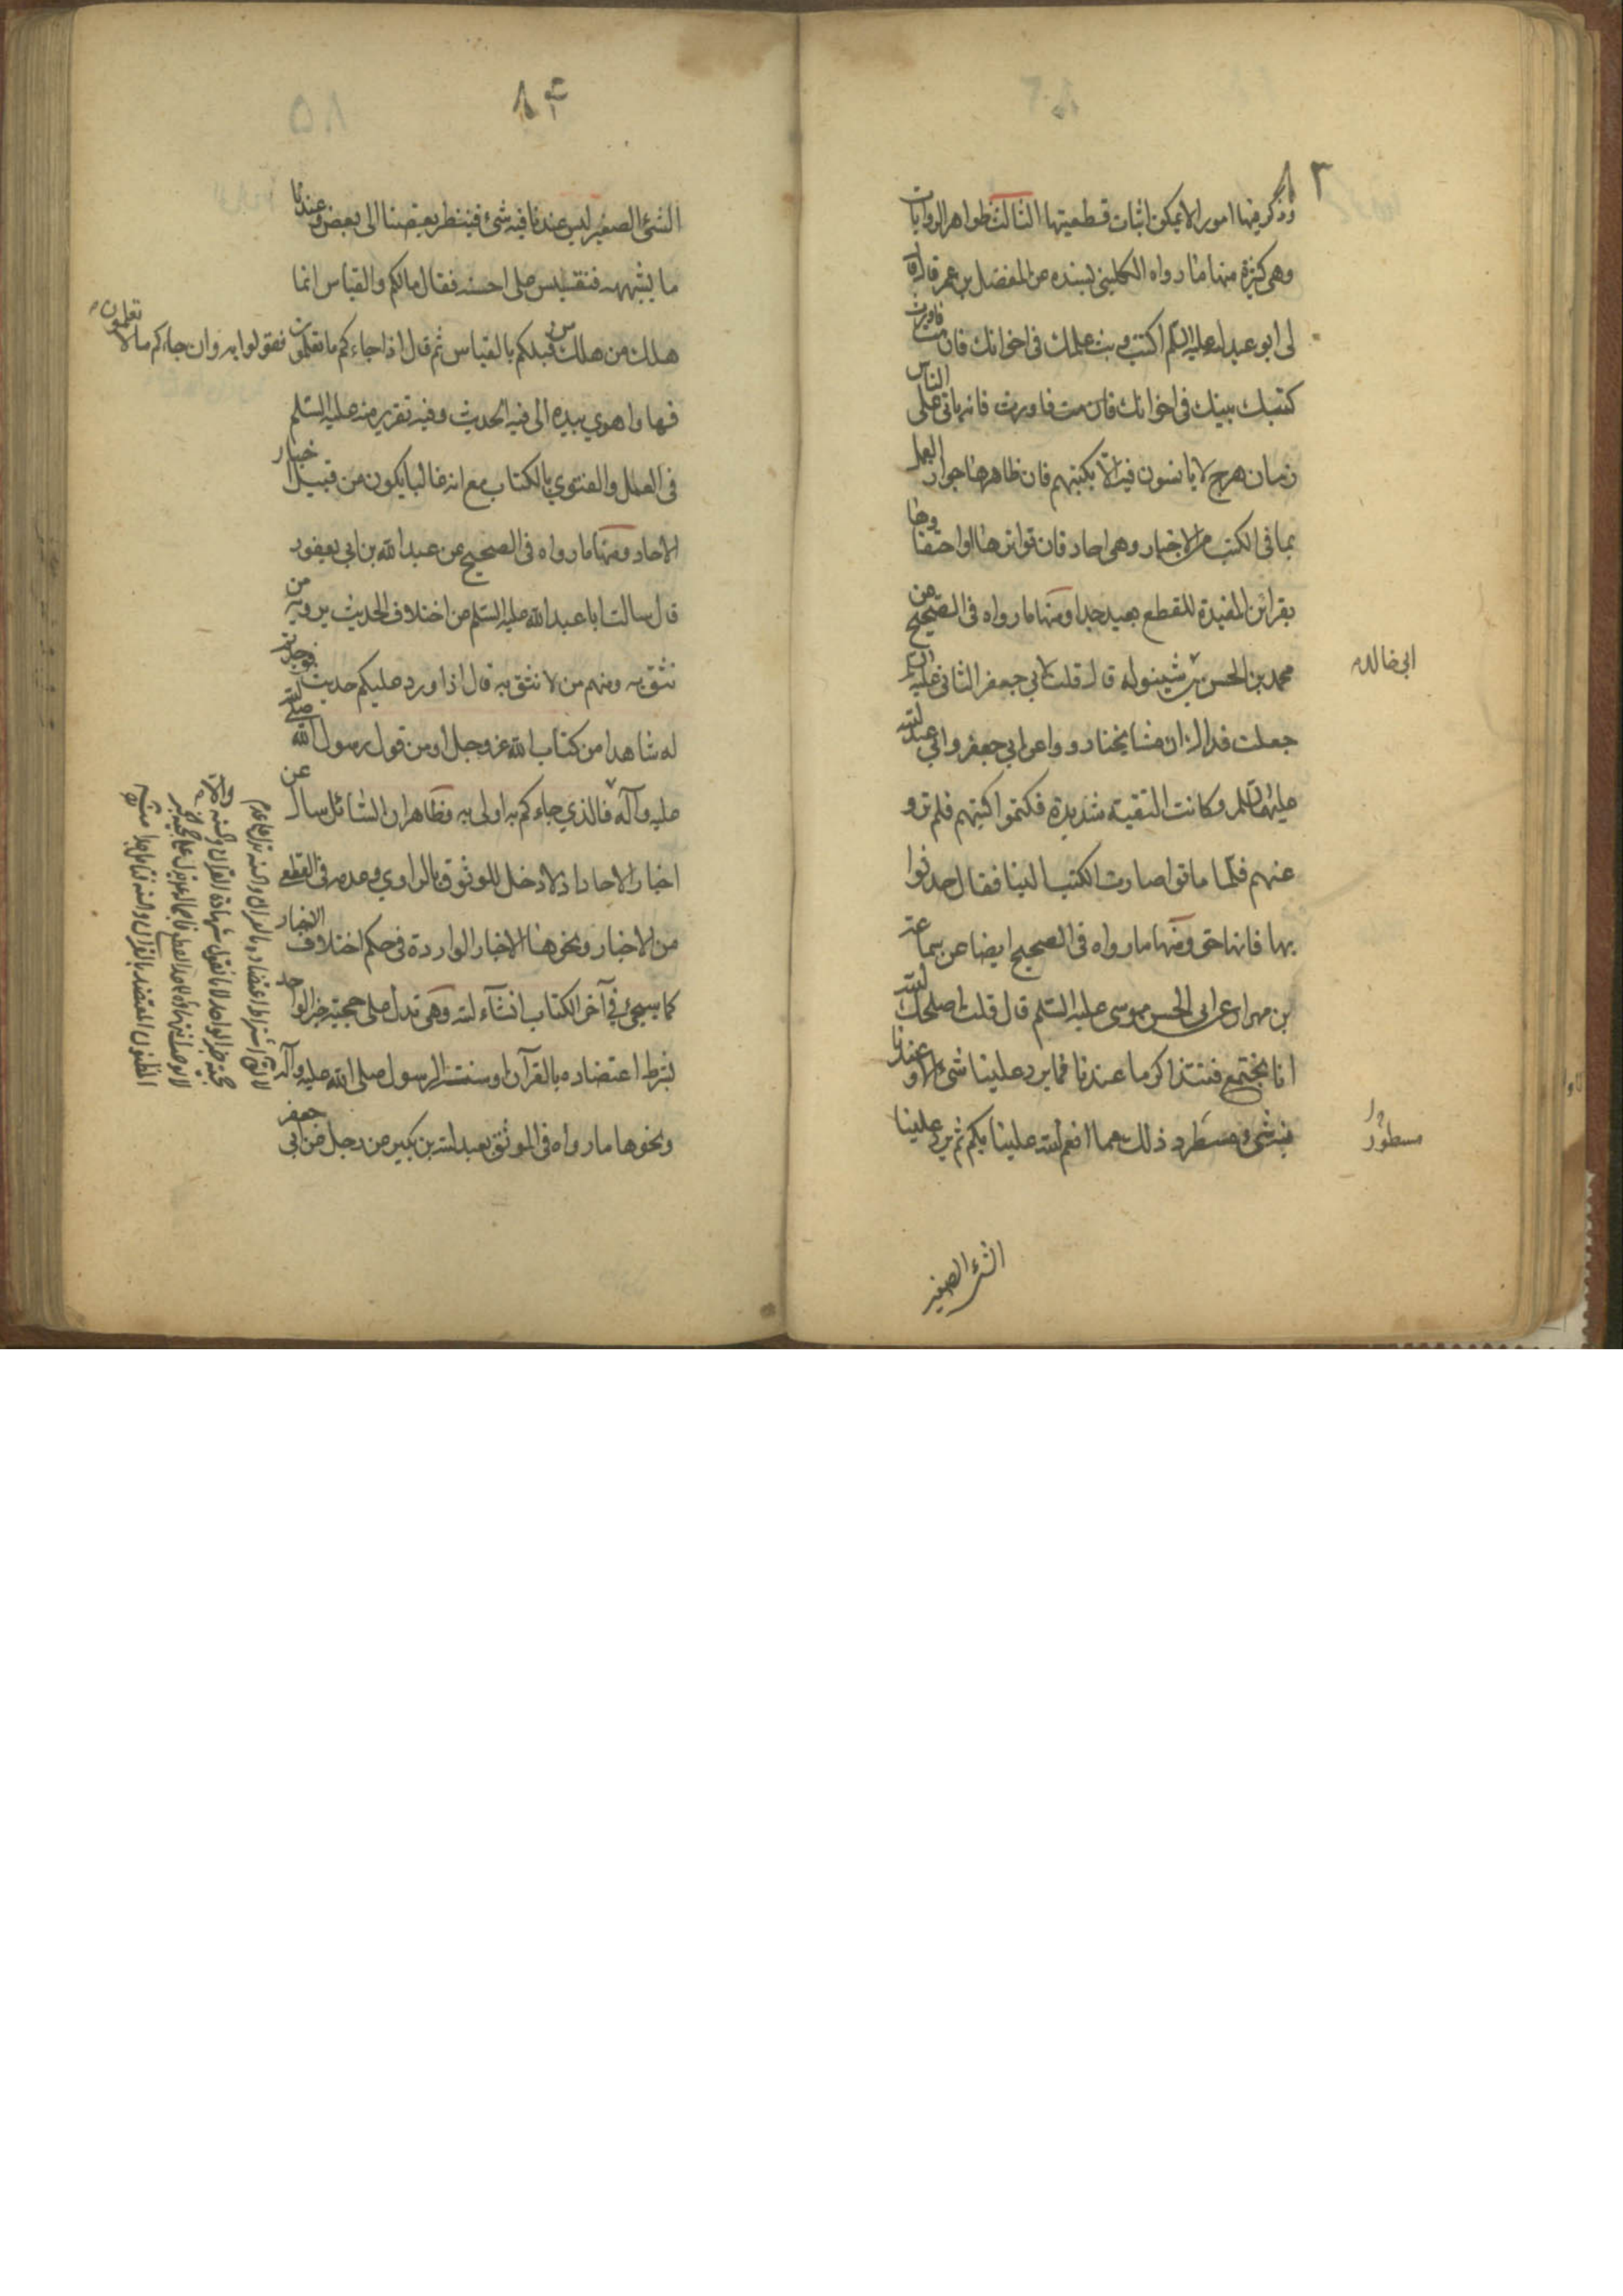 ٨٣
وذكر فيها امورا لا يمكن اثبات قطعيتها الثالث ظواهر الروايات
وهي كثيرة منها ما رواه الكليني بسنده عن المفضل بن عمر قال قال
لي ابو عبد الله عليه السلم اكتب وبث علمك في اخوانك فان مت فاورث
كتبك بنيك في اخوانك فان مت فاورث فانه ياتي على الناس
زمان هرج لا يانسون فيه الا بكتبهم فان ظاهرها جواز العمل
بما في الكتب من الاخبار وهي احاد فان تواترها او احتفافها
بقرائن المفيدة للقطع بعيد جدا ومنها ما رواه في الصحيح عن
محمد بن الحسن بن شينوله قال قلت لابي جعفر الثاني عليه السلم
ابي خالد
جعلت فداك ان مشايخنا رووا عن ابي جعفر وابي عبد الله
عليهما السلم وكانت التقية شديدة فكتموا كتبهم فلم ترو
عنهم فلما ماتوا صارت الكتب الينا فقال حدثوا
بها فانها حق ومنها ما رواه في الصحيح ايضا عن سماعة
بن مهران عن ابي الحسن موسى عليه السلم قال قلت اصلحك الله
انا نجتمع فنتذاكر ما عندنا فما يرد علينا شئ الا وعندنا
فيه شئ مسطر وذلك مما انعم الله علينا بكم ثم يرد علينا
مسطور
الشئ الصغير
٨٤
الشئ الصغير ليس عندنا فيه شئ فينظر بعضنا الى بعض وعندنا
ما يشبهه فنقيس على احسنه فقال مالكم والقياس انما
هلك من هلك من قبلكم بالقياس ثم قال اذا جاءكم ما تعلمون فقولوا به وان جاءكم ما لا تعلمون
فها واهوي بيده الى فيه الحديث وفيه تقرير منه عليه السلم
في العمل والفتوي بالكتاب مع انه غالبا يكون من قبيل اخبار
الاحاد ومنها ما رواه في الصحيح عن عبد الله بن ابي يعفور
قال سالت ابا عبد الله عليه السلم من اختلاف الحديث يرويه من
نثق به ومنهم من لا نثق به قال اذا ورد عليكم حديث فوجدتم
له شاهدا من كتاب الله عز وجل او من قول رسول الله صلى الله
عليه وآله فالذي جاءكم به اولى به وظاهر ان السائل سال عن
اخبار الاحاد اذ لا دخل للوثوق بالراوي وعدمه في القطع
من الاخبار ونحوها الاخبار الواردة في حكم اختلاف الاخبار
كما سيجئ في آخر الكتاب انشاء الله وهي تدل على حجية خبر الواحد
بشرط اعتضاده بالقرآن او سنت الرسول صلى الله عليه وآله
ونحوها ما رواه في الموثق بعبد الله بن بكير من رجل عن ابي جعفر